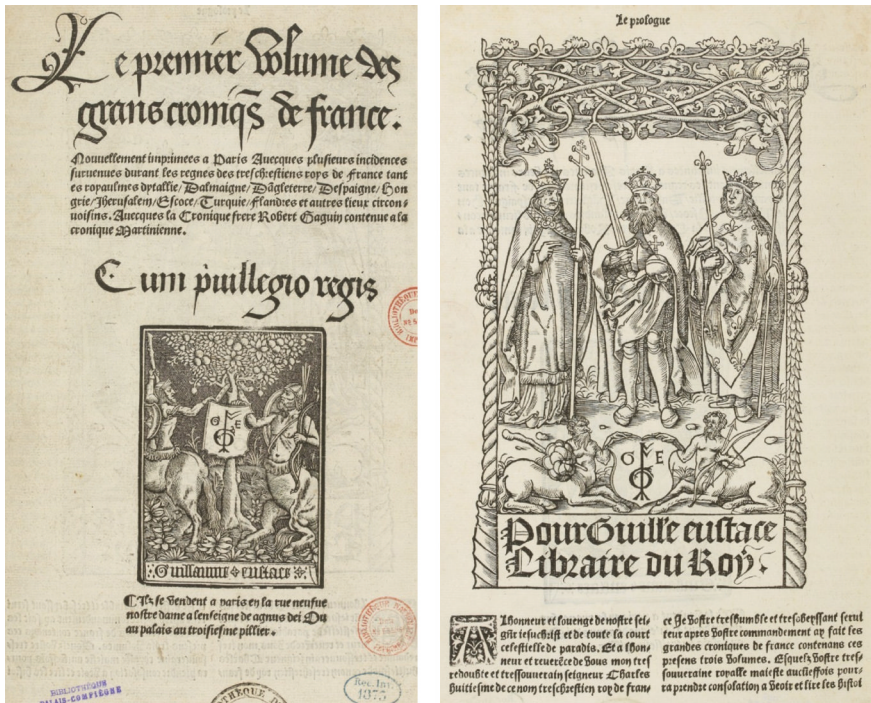 Le premier volume des
grans croniqs̄ de france.
Nouuellement imprimees a Paris Auecques plusieurs incidences
suruenues durant les regnes des treschrestiens roys de France tant
es royaulmes dytallie/Dalmaigne/Dāgleterre/Despaigne/Hon
grie/Jherusalem/Escoce/Turquie/flandres et autres lieux circon-
uoisins. Auecques la Cronique frere Robert Gaguin contenue a la
cronique Martinienne.
Cum p̄uillegio regis
G E
Guillaume eustace
Ilz se vendent a paris en la rue neufue
nostre dame a lenseigne de agnus dei Ou
au palais au troisiesme pillier.
BIBLIOTHEQUE
PALAIS-COMPIÈGNE
Rec. Int.
1875
Le prologue
G E
Pour Guill'e eustace
Libraire du Roy.
A Lhonneur et louenge de nostre sei-
gn̄r iesuchrist et de toute la court
celestielle de paradis. Et a lhon-
neur et reuerēce de vous mon tres
redoubte et tressouuerain seigneur Charles
huitiesme de ce nom treschrestien roy de fran-
ce Je vostre treshumble et tresobeyssant serui
teur apres vostre commandement ay fait les
grandes croniques de france contenans ces
presens trois volumes. Esquelz vostre tres-
souueraine royalle maieste aucūesfois pour-
ra prendre consolation a veoir et lire les histoi